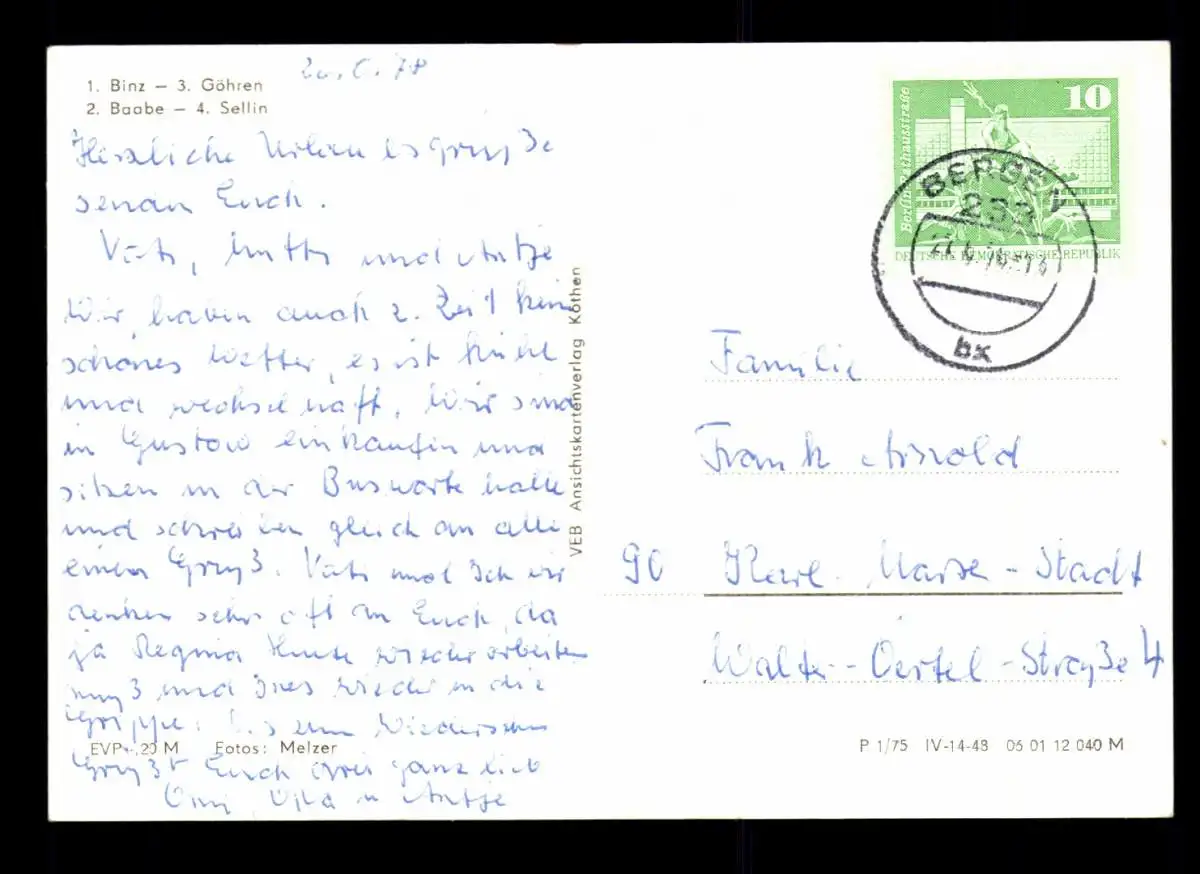 1. Binz – 3. Göhren
2. Baabe – 4. Sellin
Herzliche Urlaubsgrüße
senden Euch.
Vati, Mutti und Antje
Wir haben auch z. Zeit kein
schönes Wetter, es ist kühl
und wechselhaft. Wir sind
in Gustow einkaufen und
sitzen in der Buswartehalle
und schreiben gleich an alle
einen Gruß. Vati und ich wir
denken sehr oft an Euch, da
ja Regina heute wieder arbeiten
muß und Ines wieder in die
Grippe. Bis zum Wiedersehn
Grüßt Euch drei ganz lieb
Omi, Opa u Antje
EVP -,20 M Fotos: Melzer
VEB Ansichtskartenverlag Köthen
10
Berlin, Rathausstraße
DEUTSCHE DEMOKRATISCHE REPUBLIK
BERGEN
253
bx
Familie
Frank Arnold
90 Karl-Marx-Stadt
Walter-Oertel-Straße 4
P 1/75 IV-14-48 06 01 12 040 M